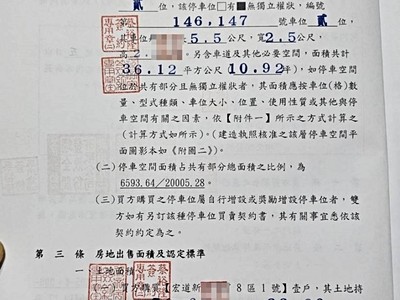 貳 位，該停車位□有■無獨立權狀，編號
第 146,147 號車位 貳 位，
5.5公尺，寬2.5公尺，
高2. 。另含車道及其他必要空間，面積共計
36.12平方公尺 10.92坪)，如停車空間
位於共有部分且無獨立權狀者，其面積應按車位(格)數
量、型式種類、車位大小、位置、使用性質或其他與停
車空間有關之因素，依【附件一】所示之方式計算之
(計算方式如所示)。(建造執照核准之該層停車空間平
面圖影本如《附圖二》)。
(二)停車空間面積占共有部分總面積之比例，為
6593.64／20005.28。
(三)買方購買之停車位屬自行增設或獎勵增設停車位者，雙
方如有另訂該種停車位買賣契約書，其有關事宜悉依該
契約約定為之。
第 三 條 房地出售面積及認定標準
一 土地面積
(一)買方購買【宏道新 8區1號】壹戶，其土地持